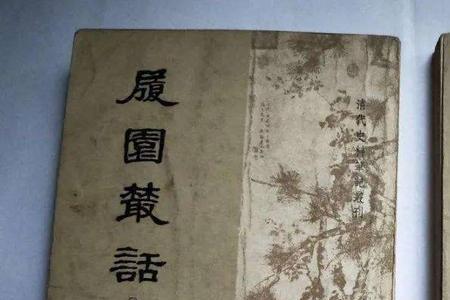 履園叢話
清代史料筆記叢刊